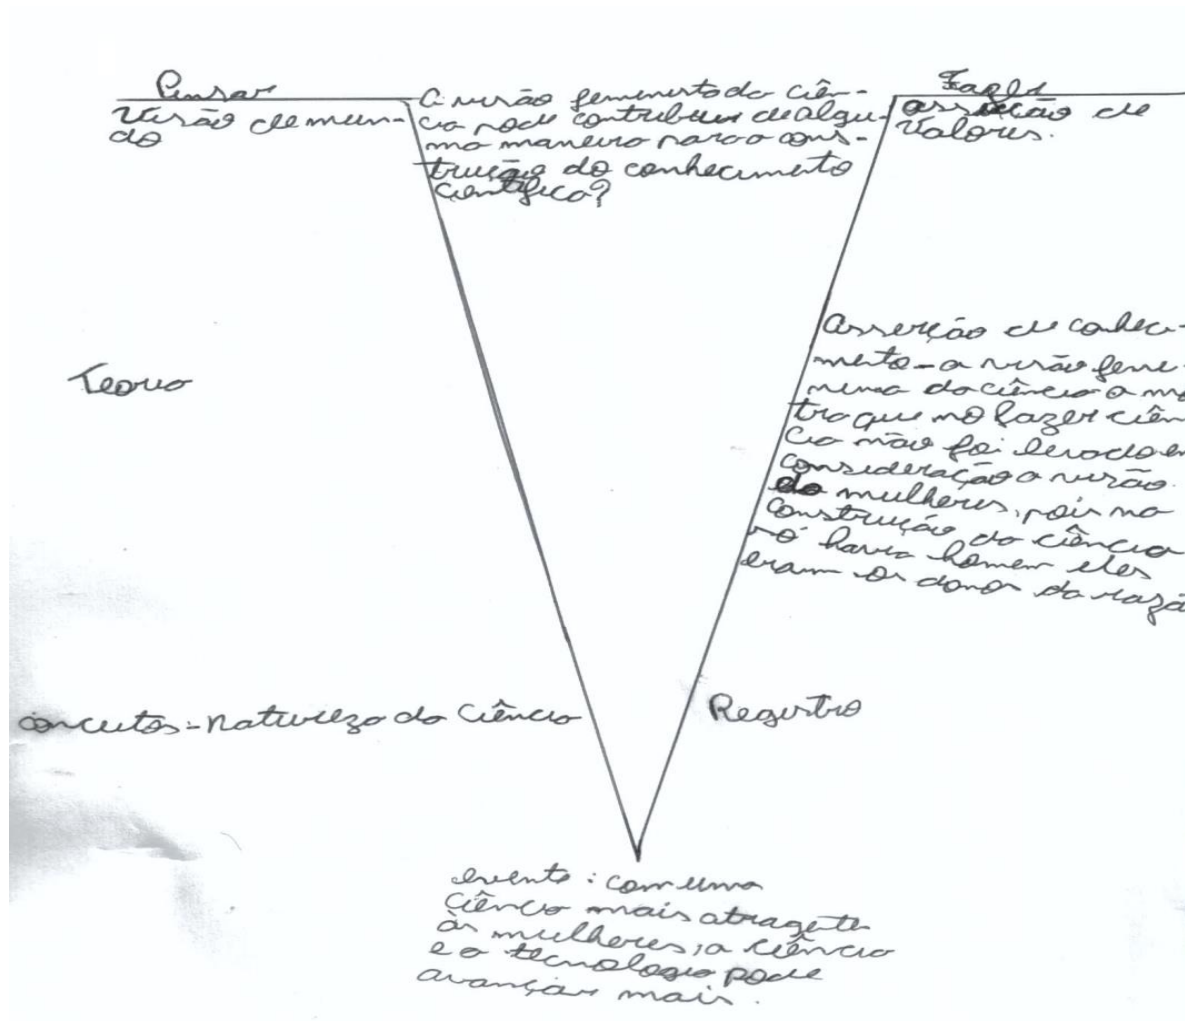 Pensar
Visão de mun-
do
A visão feminista da ciên-
cia pode contribuir de algu-
ma maneira para a cons-
trução do conhecimento
científico?
Fazer
asserção de
Valores.
Teoria
Asserção de conheci-
mento - a visão femi-
nina da ciência a mos
tra que no fazer ciên
cia não foi levado em
consideração a visão
da mulheres, pois na
construção da ciência
só havia homem eles
eram os donos da razã
onceitos = natureza da Ciência
Registro
evento : com uma
Ciência mais atragente
às mulheres, a ciência
e a tecnologia pode
avançar mais.